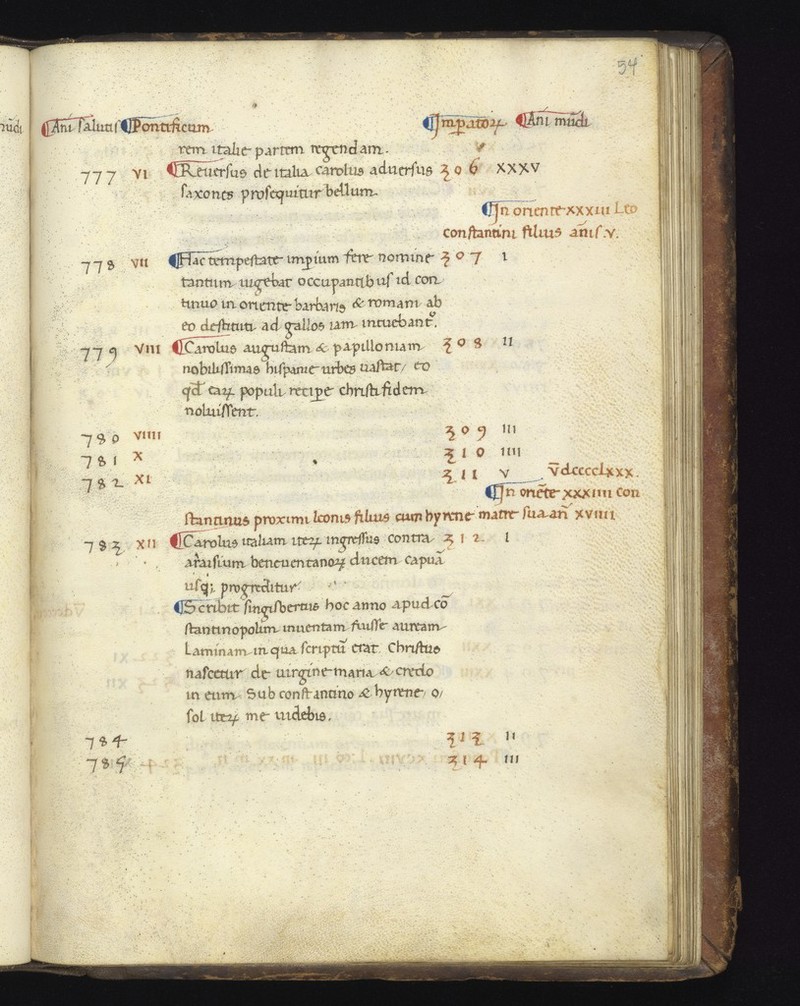 54
Ani salutis Pontificum Impatoꝝ Ani mũdi
rem italie partem regendam. v
777 VI Reuersus de italia carolus aduersus 306 XXXV
saxones prosequitur bellum.
In oriente xxxiii Leo
constantini filius anis .v.
778 VII Hac tempestate imperium fere nomine 307 I
tantum uigebat occupantibus id con
tinuo in oriente barbaris & romani ab
eo destituti ad gallos iam intuebant.
779 VIII Carolus augustam & papilloniam 308 II
nobilissimas hispanie urbes uastat, eo
qd̃ eaꝝ populi recipe christi fidem
noluissent.
780 VIIII 309 III
781 X 310 IIII
782 XI 311 V V̄dcccclxxx.
In oriẽte xxxiiii con
stantinus proximi leonis filius cum hyrene matre sua añ xviiii
783 XII Carolus italiam iteꝝ ingressus contra 312 I
araisium beneuentanoꝝ ducem capuã
usqꝫ progreditur.
Scribit singisbertus hoc anno apud cõ
stantinopolim inuentam fuisse auream
Laminam in qua scriptũ erat. Christus
nascetur de uirgine maria & credo
in eum. Sub constantino & hyrene o
sol iteꝝ me uidebis.
784 313 II
785 314 III